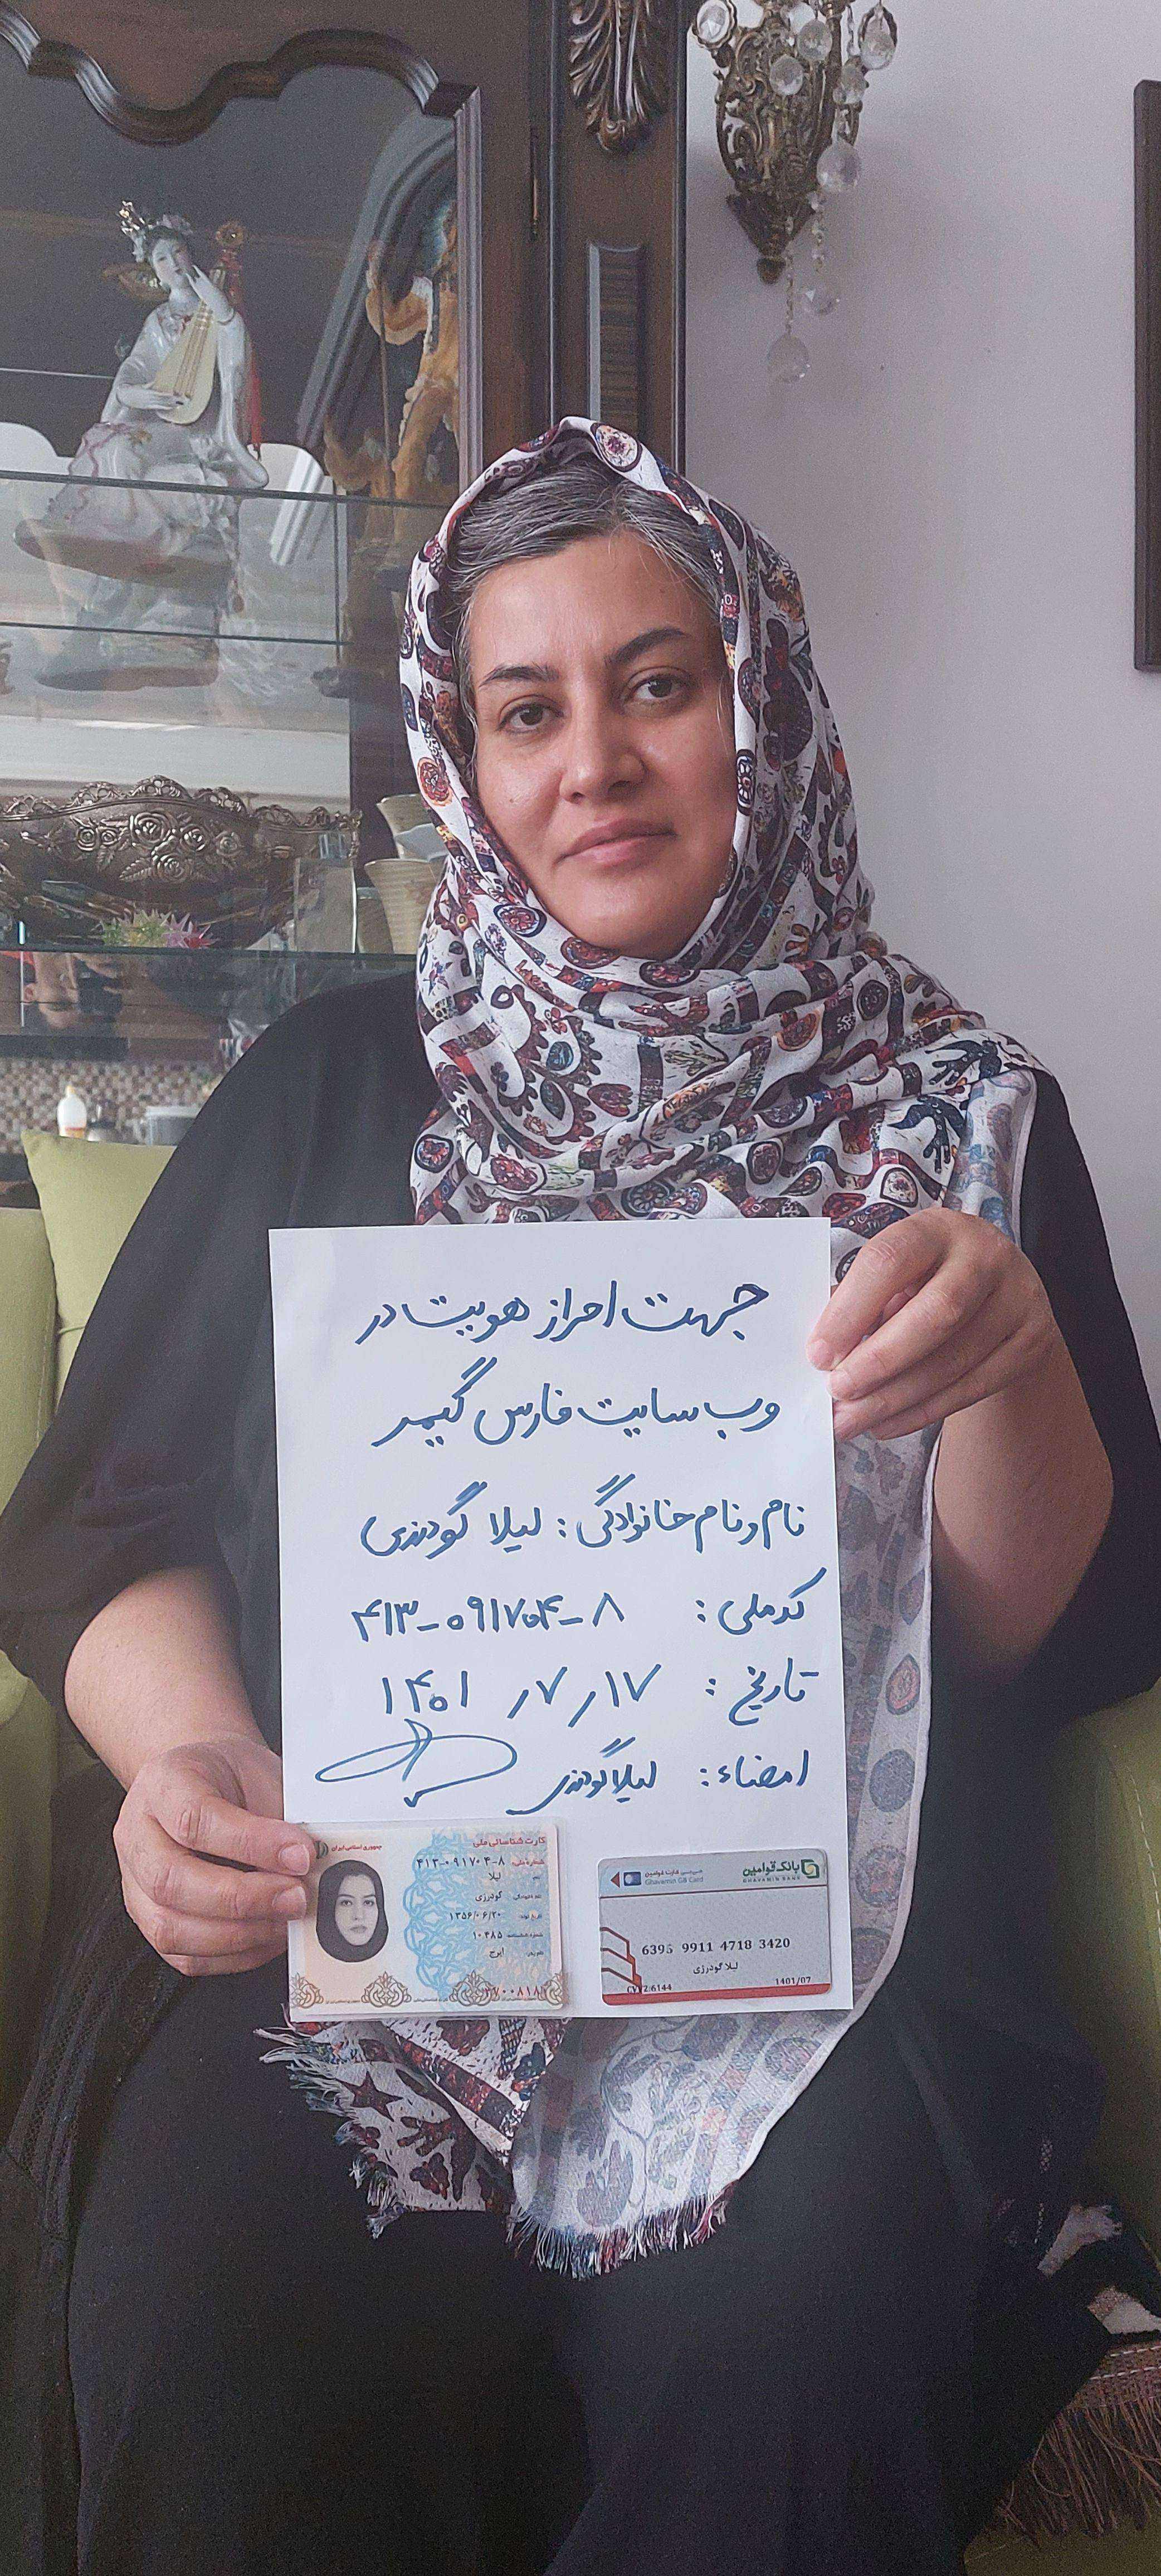 جهت احراز هویت در
وب سایت فارس گیمر
نام و نام خانوادگی : لیلا گودرزی
کد ملی : ۴۱۳-۰۹۱۷۰۴-۸
تاریخ : ۱۴۰۱/۷/۱۷
امضاء : لیلا گودرزی
جمهوری اسلامی ایران
کارت شناسائی ملی
شماره ملی: ۴۱۳-۰۹۱۷۰۴-۸
نام: لیلا
نام خانوادگی: گودرزی
تاریخ تولد: ۱۳۵۶/۰۶/۲۰
شماره شناسنامه: ۱۰۴۸۵
نام پدر: ایرج
بانک قوامین
GHAVAMIN BANK
Ghavamin GB Card
6395 9911 4718 3420
لیلا گودرزی
1401/07